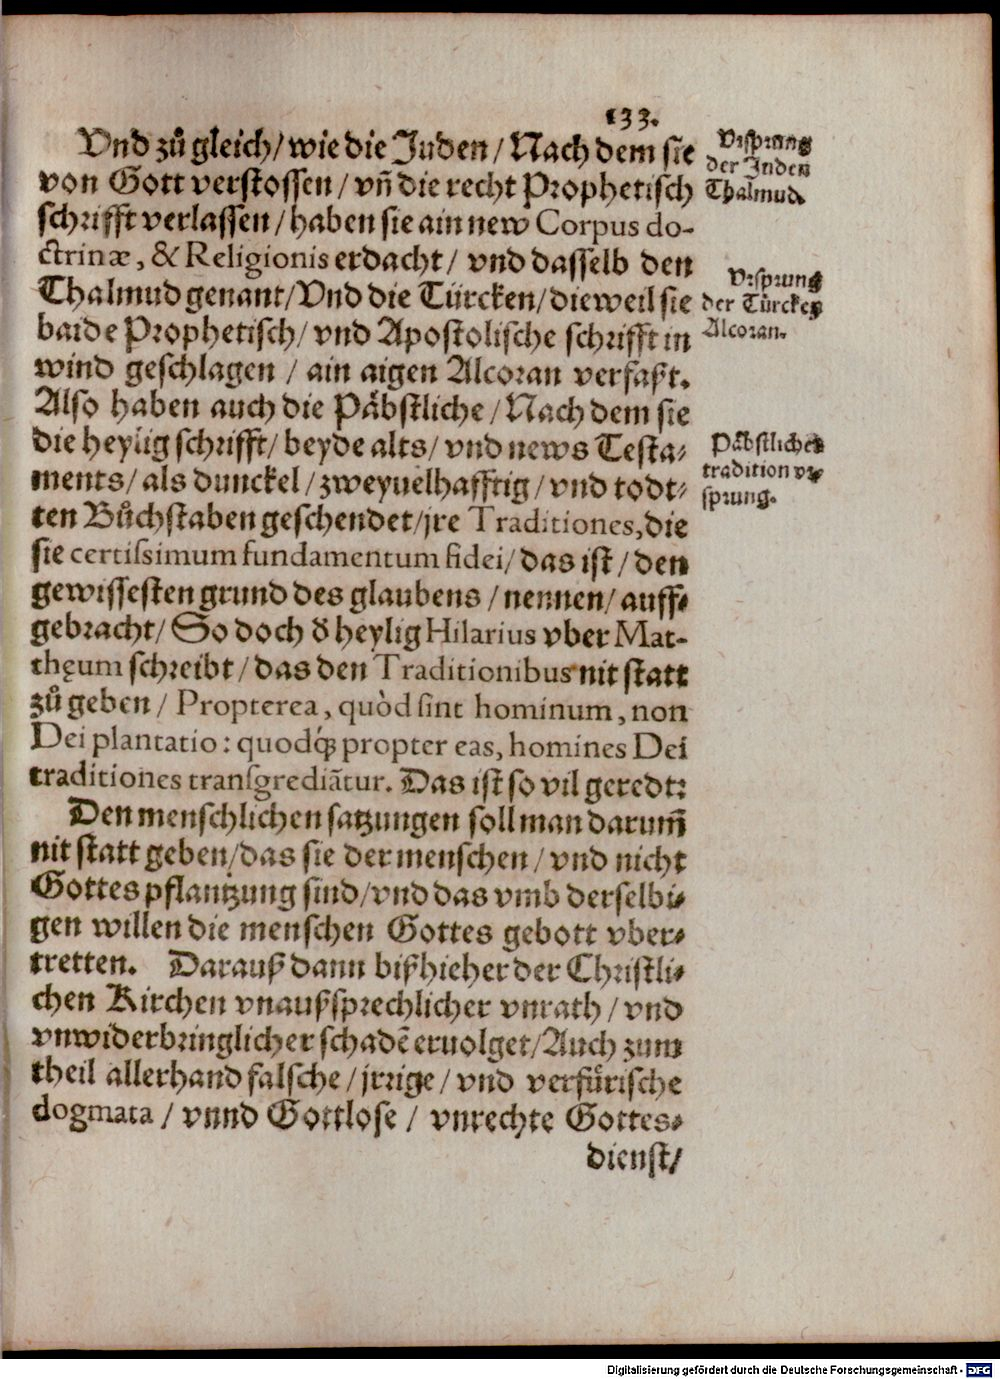 133.
Vnd zů gleich/ wie die Juden/ Nach dem sie
von Gott verstossen/ vñ die recht Prophetisch
schrifft verlassen/ haben sie ain new Corpus do-
ctrinæ, & Religionis erdacht/ vnd dasselb den
Thalmud genant/ Vnd die Türcken/ dieweil sie
baide Prophetisch/ vnd Apostolische schrifft in
wind geschlagen / ain aigen Alcoran verfaßt.
Also haben auch die Påbstliche/ Nach dem sie
die heylig schrifft/ beyde alts/ vnd news Testa-
ments/ als dunckel/ zweyuelhafftig/ vnd todt-
ten Bůchstaben geschendet/ jre Traditiones, die
sie certissimum fundamentum fidei/ das ist/ den
gewissesten grund des glaubens/ nennen/ auff-
gebracht/ So doch ð heylig Hilarius vber Mat-
thęum schreibt/ das den Traditionibus nit statt
zů geben/ Propterea, quòd sint hominum, non
Dei plantatio: quodq́; propter eas, homines Dei
traditiones transgrediãtur. Das ist so vil geredt:
Den menschlichen satzungen soll man darum̃
nit statt geben/ das sie der menschen/ vnd nicht
Gottes pflantzung sind/ vnd das vmb derselbi-
gen willen die menschen Gottes gebott vber-
tretten. Darauß dann bißhieher der Christli-
chen Kirchen vnaußsprechlicher vnrath/ vnd
vnwiderbringlicher schadẽ eruolget/ Auch zum
theil allerhand falsche/ jrrige/ vnd verfůrische
dogmata/ vnnd Gottlose/ vnrechte Gottes-
dienst/
Vrsprung
der Juden
Thalmud.
Vrsprung
der Türcken
Alcoran.
Påbstlicher
tradition vr-
sprung.
Digitalisierung gefördert durch die Deutsche Forschungsgemeinschaft - DFG